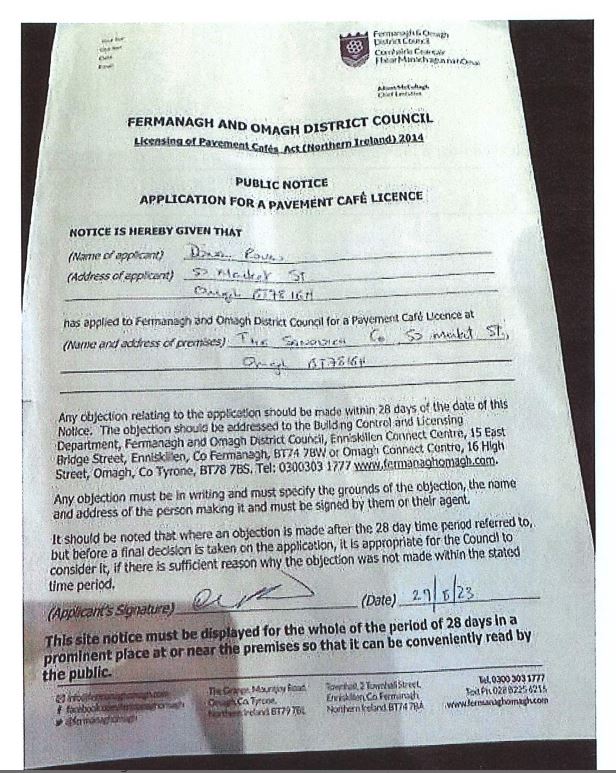 Your Ref:
Our Ref:
Date:
Email:
Fermanagh & Omagh
District Council
Comhairle Ceantair
Fhear Manach agus na hÓmaí
Alison McCullagh
Chief Executive
FERMANAGH AND OMAGH DISTRICT COUNCIL
Licensing of Pavement Cafés Act (Northern Ireland) 2014
PUBLIC NOTICE
APPLICATION FOR A PAVEMENT CAFÉ LICENCE
NOTICE IS HEREBY GIVEN THAT
(Name of applicant)
(Address of applicant) 50 Market St
Omagh BT78 1EH
has applied to Fermanagh and Omagh District Council for a Pavement Café Licence at
(Name and address of premises) THE SANDWICH Co 50 market St,
Omagh BT78 1EH
Any objection relating to the application should be made within 28 days of the date of this
Notice. The objection should be addressed to the Building Control and Licensing
Department, Fermanagh and Omagh District Council, Enniskillen Connect Centre, 15 East
Bridge Street, Enniskillen, Co Fermanagh, BT74 7BW or Omagh Connect Centre, 16 High
Street, Omagh, Co Tyrone, BT78 7BS. Tel: 0300303 1777 www.fermanaghomagh.com.
Any objection must be in writing and must specify the grounds of the objection, the name
and address of the person making it and must be signed by them or their agent.
It should be noted that where an objection is made after the 28 day time period referred to,
but before a final decision is taken on the application, it is appropriate for the Council to
consider it, if there is sufficient reason why the objection was not made within the stated
time period.
(Applicant's Signature) (Date) 29/8/23
This site notice must be displayed for the whole of the period of 28 days in a
prominent place at or near the premises so that it can be conveniently read by
the public.
info@fermanaghomagh.com
facebook.com/fermanaghomagh
@fermanaghomagh
The Grange, Mountjoy Road,
Omagh, Co Tyrone,
Northern Ireland, BT79 7BL
Townhall, 2 Townhall Street,
Enniskillen, Co. Fermanagh,
Northern Ireland, BT74 7BA
Tel, 0300 303 1777
Text Ph. 028 8225 6216
www.fermanaghomagh.com